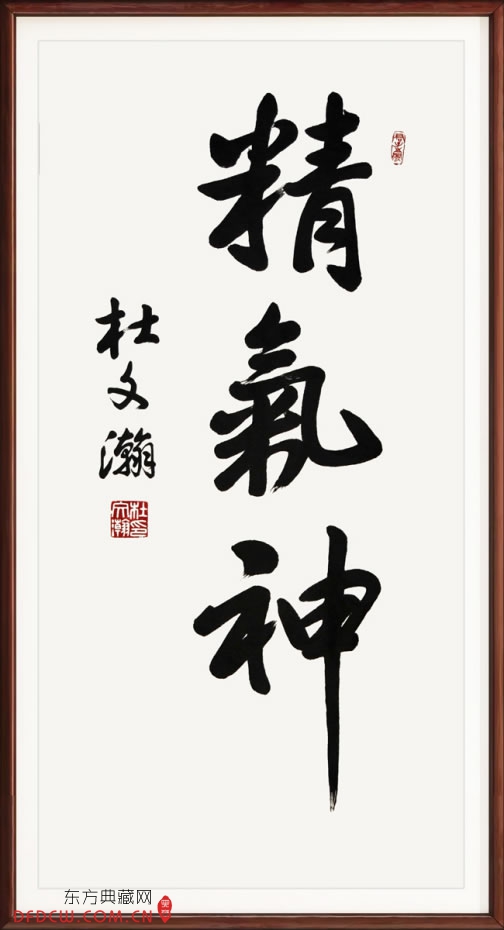 精氣神
杜文瀚
杜文瀚印
东方典藏网
DFDCW.COM.CN